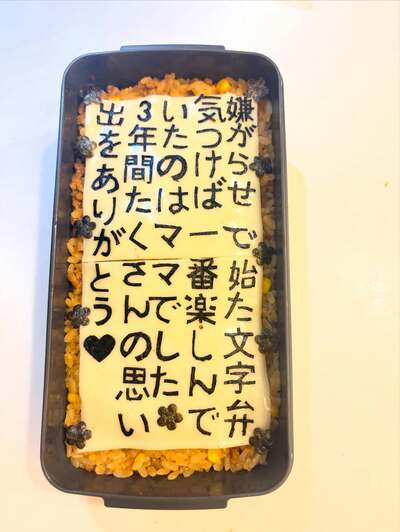 嫌がらせで始た文字弁
気つけば一番楽しんで
いたのはママでした
3年間たくさんの思い
出をありがとう♥